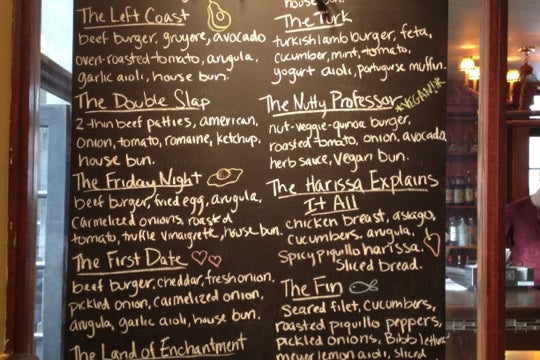 The Left Coast
beef burger, gruyere, avocado
oven-roasted tomato, arugula.
garlic aioli, house bun.
The Double Slap
2-thin beef patties, american,
onion, tomato, romaine, ketchup.
house bun.
The Friday Night
beef burger, fried egg, arugula,
carmelized onions, roasted
tomato, truffle vinaigrette, house bun.
The First Date
beef burger, cheddar, fresh onion,
pickled onion, carmelized onion,
arugula, garlic aioli, house bun.
The Land of Enchantment
house bun.
The Turk
turkish lamb burger, feta,
cucumber, mint, tomato,
yogurt aioli, portuguese muffin.
The Nutty Professor *VEGAN!*
nut-veggie-quinoa burger,
roasted tomato, onion, avocado,
herb sauce, Vegan bun.
The Harissa Explains
It All
chicken breast, asiago,
cucumbers, arugula.
Spicy piquillo harissa.
Sliced bread.
The Fin
Seared filet, cucumbers,
roasted piquillo peppers,
pickled onions, Bibb lettuce
meyer lemon aioli, sliced